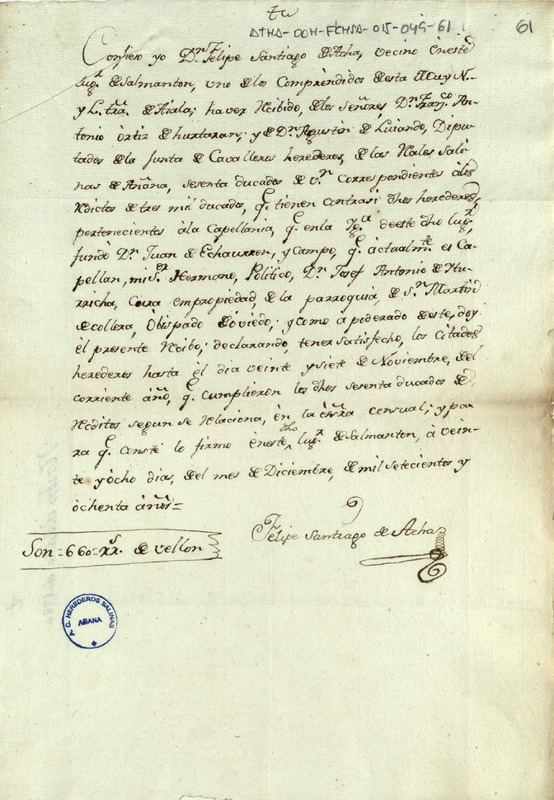 ATHA-DOH-FCHSA-015-049-61
61
Confieso yo Dn. Felipe Santiago de Acha, vecino en este
lugr. de Salmanton, uno de los Comprendidos de esta M. N.
y L. trra. de Aiala; haver Recibido, de los señores Dn. Franco. An-
tonio ortiz de hurtaran; y de Dn. Agustin de Luiando, Dipu-
tados de la Junta de Cavalleros herederos, de las Reales Sali-
nas de Añana, sesenta ducados de vn. correspondientes à los
Reditos de tres mil ducados, q. tienen contra si dhos herederos,
pertenecientes à la Capellania, q. en la Yga. de este dho lugr.
fundó Dn. Juan de Echaurren, y Campo, q. actualmte. es Ca-
pellan, mi Sr. Hermano, Politico, Dn. Josef Antonio de Itu-
rricha, Cura en propiedad, de la parroquia, de Sn. Martin
de collera, Obispado de oviedo; y como à poderado de este, doy
el presente Recibo; declarando, tener satisfecho, los Citados
herederos hasta el dia veinte y siete de Noviembre, del
corriente año, q. cumplieron los dhos sesenta ducados de
Reditos segun se relaciona, en la esvra censual; y pa-
ra q. conste lo firmo en este dho lugr. de Salmanton, à vein-
te y ocho dias, del mes de Diciembre, de mil setecientos y
òchenta años=
Felipe Santiago de Acha
Son=660=rrs. de vellon
C. HEREDEROS SALINAS
AÑANA